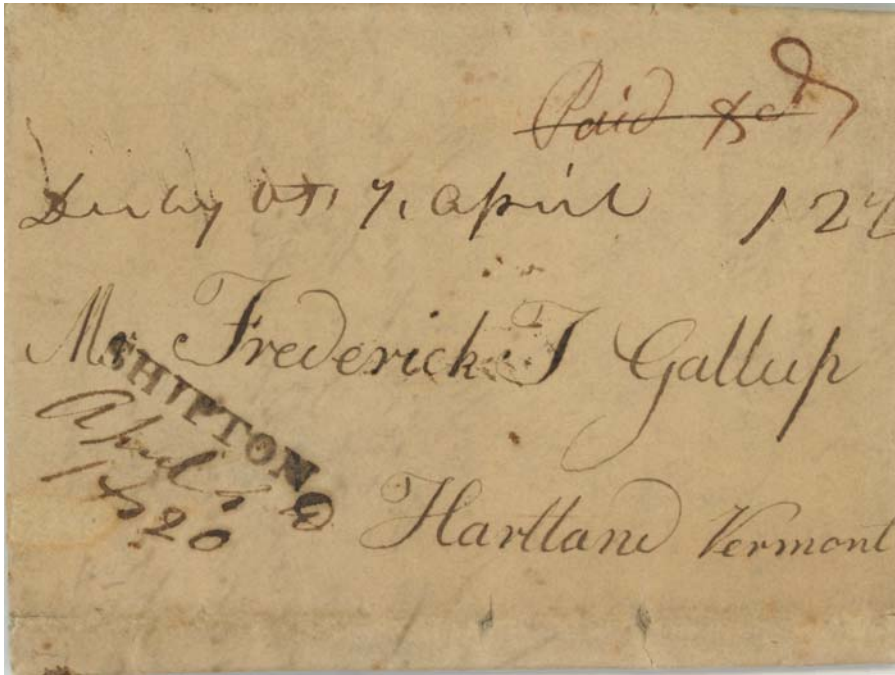 Paid
Derby Vt 7, april 12½
Mr Frederick T Gallup
SHIPTON
April
1820
Hartland Vermont